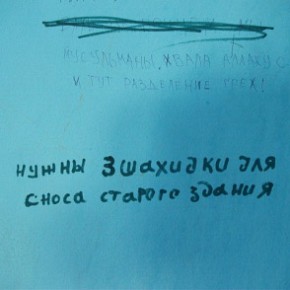 мусульманы, хвала аллаху с
и тут разделение грех!
нужны 3 шахидки для
сноса старого здания